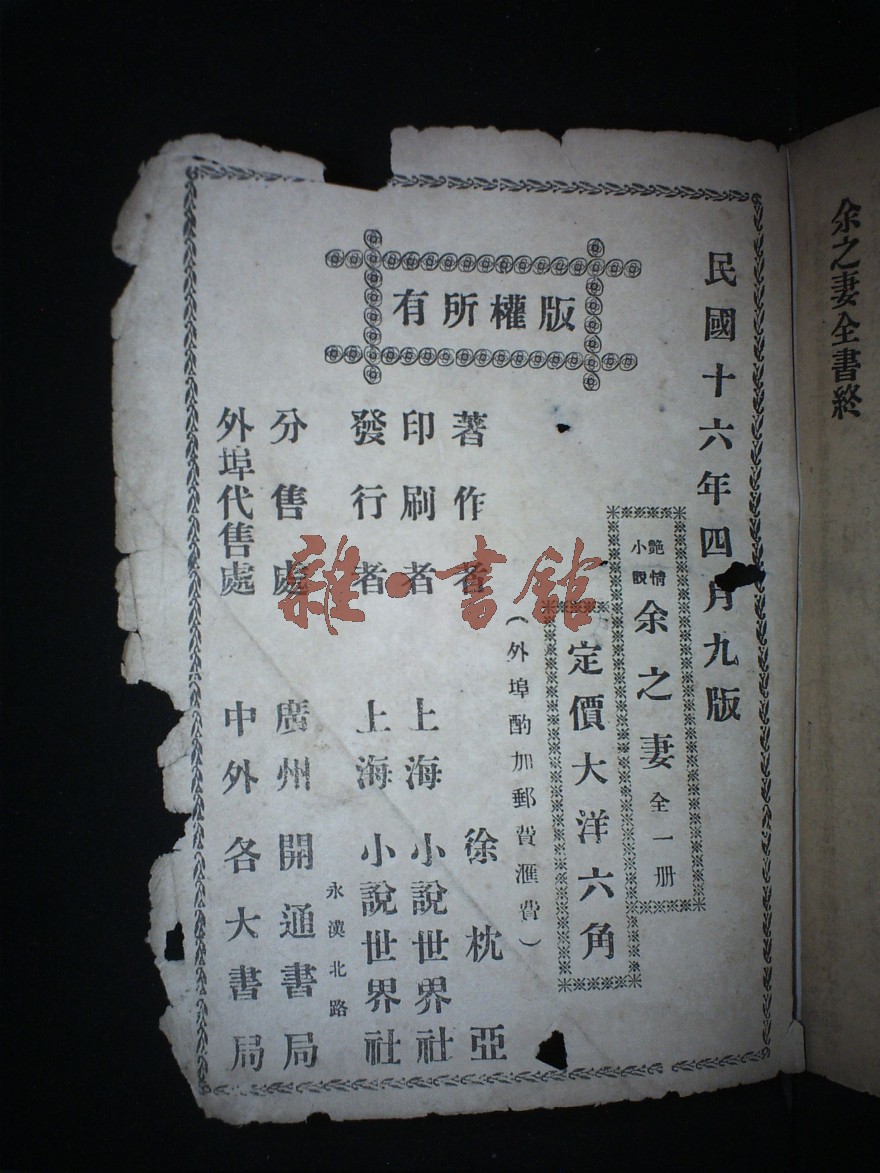 余之妻全書終
民國十六年四月九版
版權所有
艷情小說 余之妻 全一册
定價大洋六角
（外埠酌加郵費滙費）
著作者 徐枕亞
印刷者 上海小說世界社
發行者 上海小說世界社
永漢北路
分售處 廣州開通書局
外埠代售處 中外各大書局
雜·書館